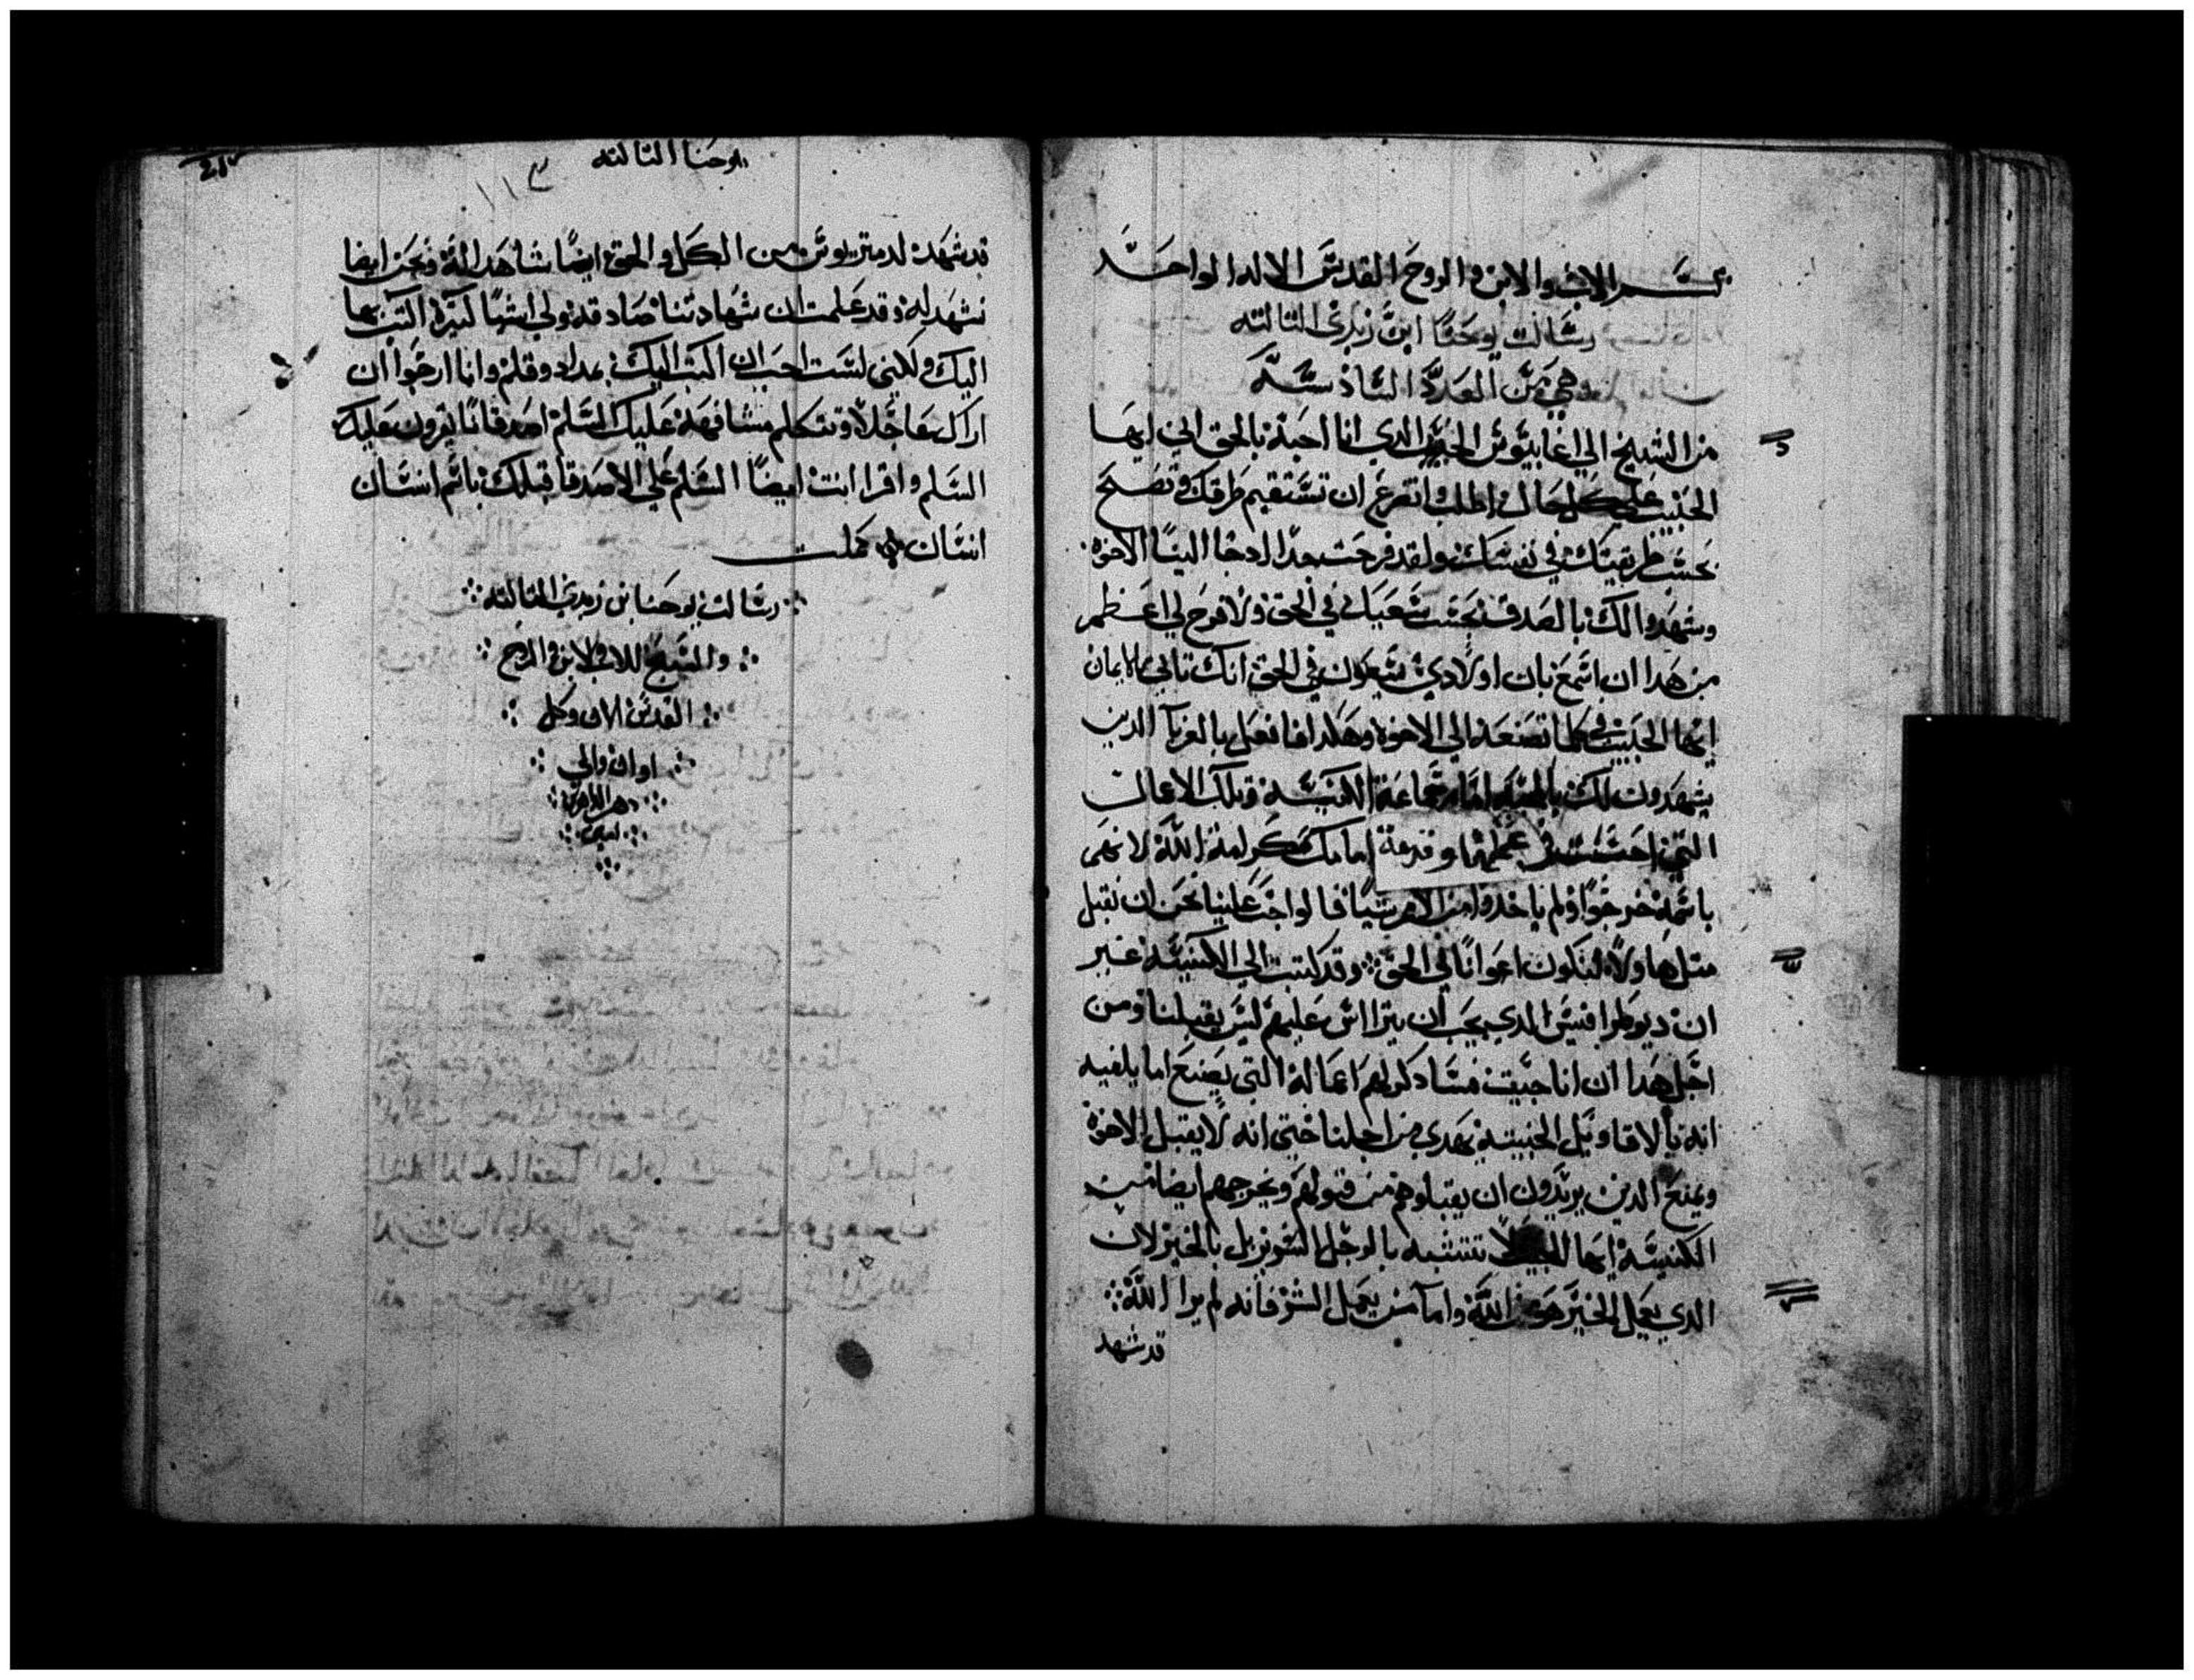 بسم الاب والابن والروح القدس الاله الواحد
رسالت يوحنا ابن زبدي التالته
وهي من العدد السادسه
من الشيخ الي اغاييوس الحبيب الدي انا احبه بالحق اني ايها
الحبيب علي كل حال اطلب واتضرع ان تستقيم طرقك وتصح
بحسب طريقتك في نفسك ولقد فرحت جدا اد جا الينا الاخوه
وشهدوا لك بالصدق بحسب سعيك في الحق ولا فرح لي اعظم
من هدا ان اسمع بان اولادي يسعون في الحق انك تاتي بالايمان
ايها الحبيب في كلما تصنعه الي الاخوه وهكدا فافعل بالغربا الدين
يشهدون لك بالمحبه امام جماعة الكنيسه وتلك الاعمال
التي احسنت في عملها وقدمة امامك ككرامة الله لانهم
باسمه خرجوا ولم ياخدوا من الامم شيا فالواجب علينا نحن ان نقبل
متل هاولاء لنكون اعوانا في الحق وقد كتبت الي الكنيسه غير
ان ديوطرافيس الدي يجب ان يتراس عليهم ليس يقبلنا ومن
اجل هدا ان انا جيت فسادكر لهم اعماله التي يصنع اما يلفيه
انه بالاقاويل الخبيته يهدي من اجلنا حتي انه لا يقبل الاخوه
ويمنع الدين يريدون ان يقبلوهم من قبولهم ويخرجهم ايضا من
الكنيسه ايها الحبيب لا تتشبه بالرجل السو بل بالخير لان
الدي يعمل الخير هو من الله واما من يعمل الشر فانه لم يرا الله
قد شهد
يوحنا التالته
١١٣
قد شهد لدمتريوس من الكل والحق ايضا شاهد له ونحن ايضا
نشهد له وقد علمت ان شهادتنا صادقه ولي اشيا كتيره اكتب بها
اليك ولكني لست احب ان اكتب اليك بمداد وقلم وانا ارجوا ان
اراك عاجلا ونتكلم مشافهه عليك السلم اصدقانا يقرون عليك
السلم واقرا انت ايضا السلم علي الاصدقا قبلك باسم انسان
انسان كملت
رسالت يوحنا بن زبدي التالته
والسبح للاب والابن والروح
القدس الان وكل
اوان والي
دهر الداهرين
امين